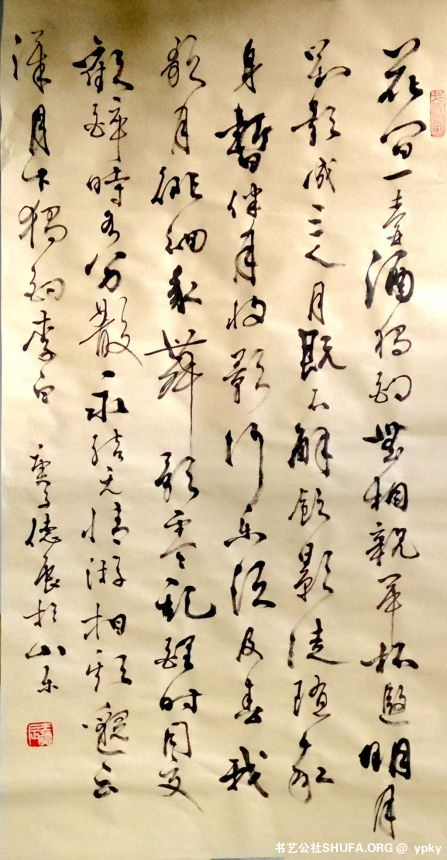 花間一壺酒獨酌無相親舉杯邀明月
對影成三人月既不解飲影徒隨我
身暫伴月將影行樂須及春我
歌月徘徊我舞影零亂醒時同交
歡醉時各分散永結无情游相期邈云
漢月下獨酌李白 德展於山東
书艺公社SHUFA.ORG @ ypky